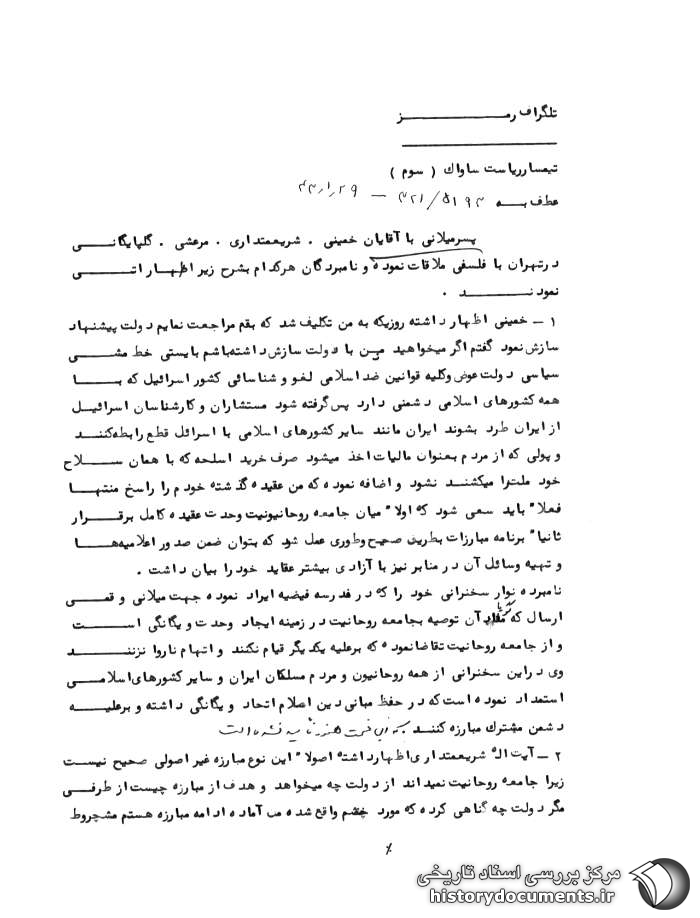 تلگراف رمــــــــــز
تیمسار ریاست ساواك ( سوم )
عطف بــــه ۳۲۱/۵۱۹۳ – ۴۳/۱/۲۹
پسرمیلانی با آقایان خمینی ۰ شریعتمداری ۰ مرعشی ۰ گلپایگانــــی
درتهران با فلسفی ملاقات نموده و نامبردگان هرکدام بشرح زیر اظهـار اتـــــی
نمودنــــــــد ۰
۱ – خمینی اظهار داشته روزیکه به من تکلیف شد که بقم مراجعت نمایم دولت پیشنهاد
سازش نمود گفتم اگر میخواهید من با دولت سازش داشته‌باشم بایستی خط مشــــی
سیاسی دولت عوض وکلیه قوانین ضد اسلامی لغو و شناسائی کشور اسرائیل که بــــا
همه کشورهای اسلامی دشمنی دارد پس گرفته شود مستشاران و کارشناسان اسرائیــل
از ایران طرد بشوند ایران مانند سایر کشورهای اسلامی با اسرائل قطع رابطه‌کننــد
و پولی که از مردم بعنوان مالیات اخذ میشود صرف خرید اسلحه که با همان ســـلاح
خود ملت‌را میکشنـد نشود و اضافه نموده که من عقیده گذشته خودم را راسخ منتهـا
فعلا" باید سعی شود که اولا" میان جامعه روحانیونیت وحدت عقیده کامل برقــرار
ثانیا" برنامه مبارزات بطریق صحیح وطوری عمل شود که بتوان ضمن صدور اعلامیه‌هــا
و تهیه وسائل آن در منابر نیز با آزادی بیشتر عقاید خود را بیان داشت ۰
نامبرده نوار سخنرانی خود را که در مدرسه فیضیه ایراد نموده جهت میلانی و قمــی
ارسال که مفاد آن توصیه بجامعه روحانیت در زمینه ایجاد وحدت و یگانگی اســـت
و از جامعه روحانیت تقاضا نموده که برعلیه یکدیگر قیام نکنند و اتهام ناروا نزننـــد
وی در این سخنرانی از همه روحانیون و مردم مسلکان ایران و سایر کشورهای اسلامــی
استمداد نموده است که در حفظ مبانی دین اسلام اتحاد و یگانگی داشته و برعلیـــه
دشمن مشترك مبارزه کننـد
۲ – آیت اله شریعتمداری اظهارداشته اصولا" این نوع مبارزه غیر اصولی صحیح نیست
زیرا جامعه روحانیت نمیداند از دولت چه میخواهد و هدف از مبارزه چیست از طرفــی
مگر دولت چه گناهی کرده که مورد خشم واقع شده من آماده ادامه مبارزه هستم مشروط
مرکز بررسی اسناد تاریخی
historydocuments.ir